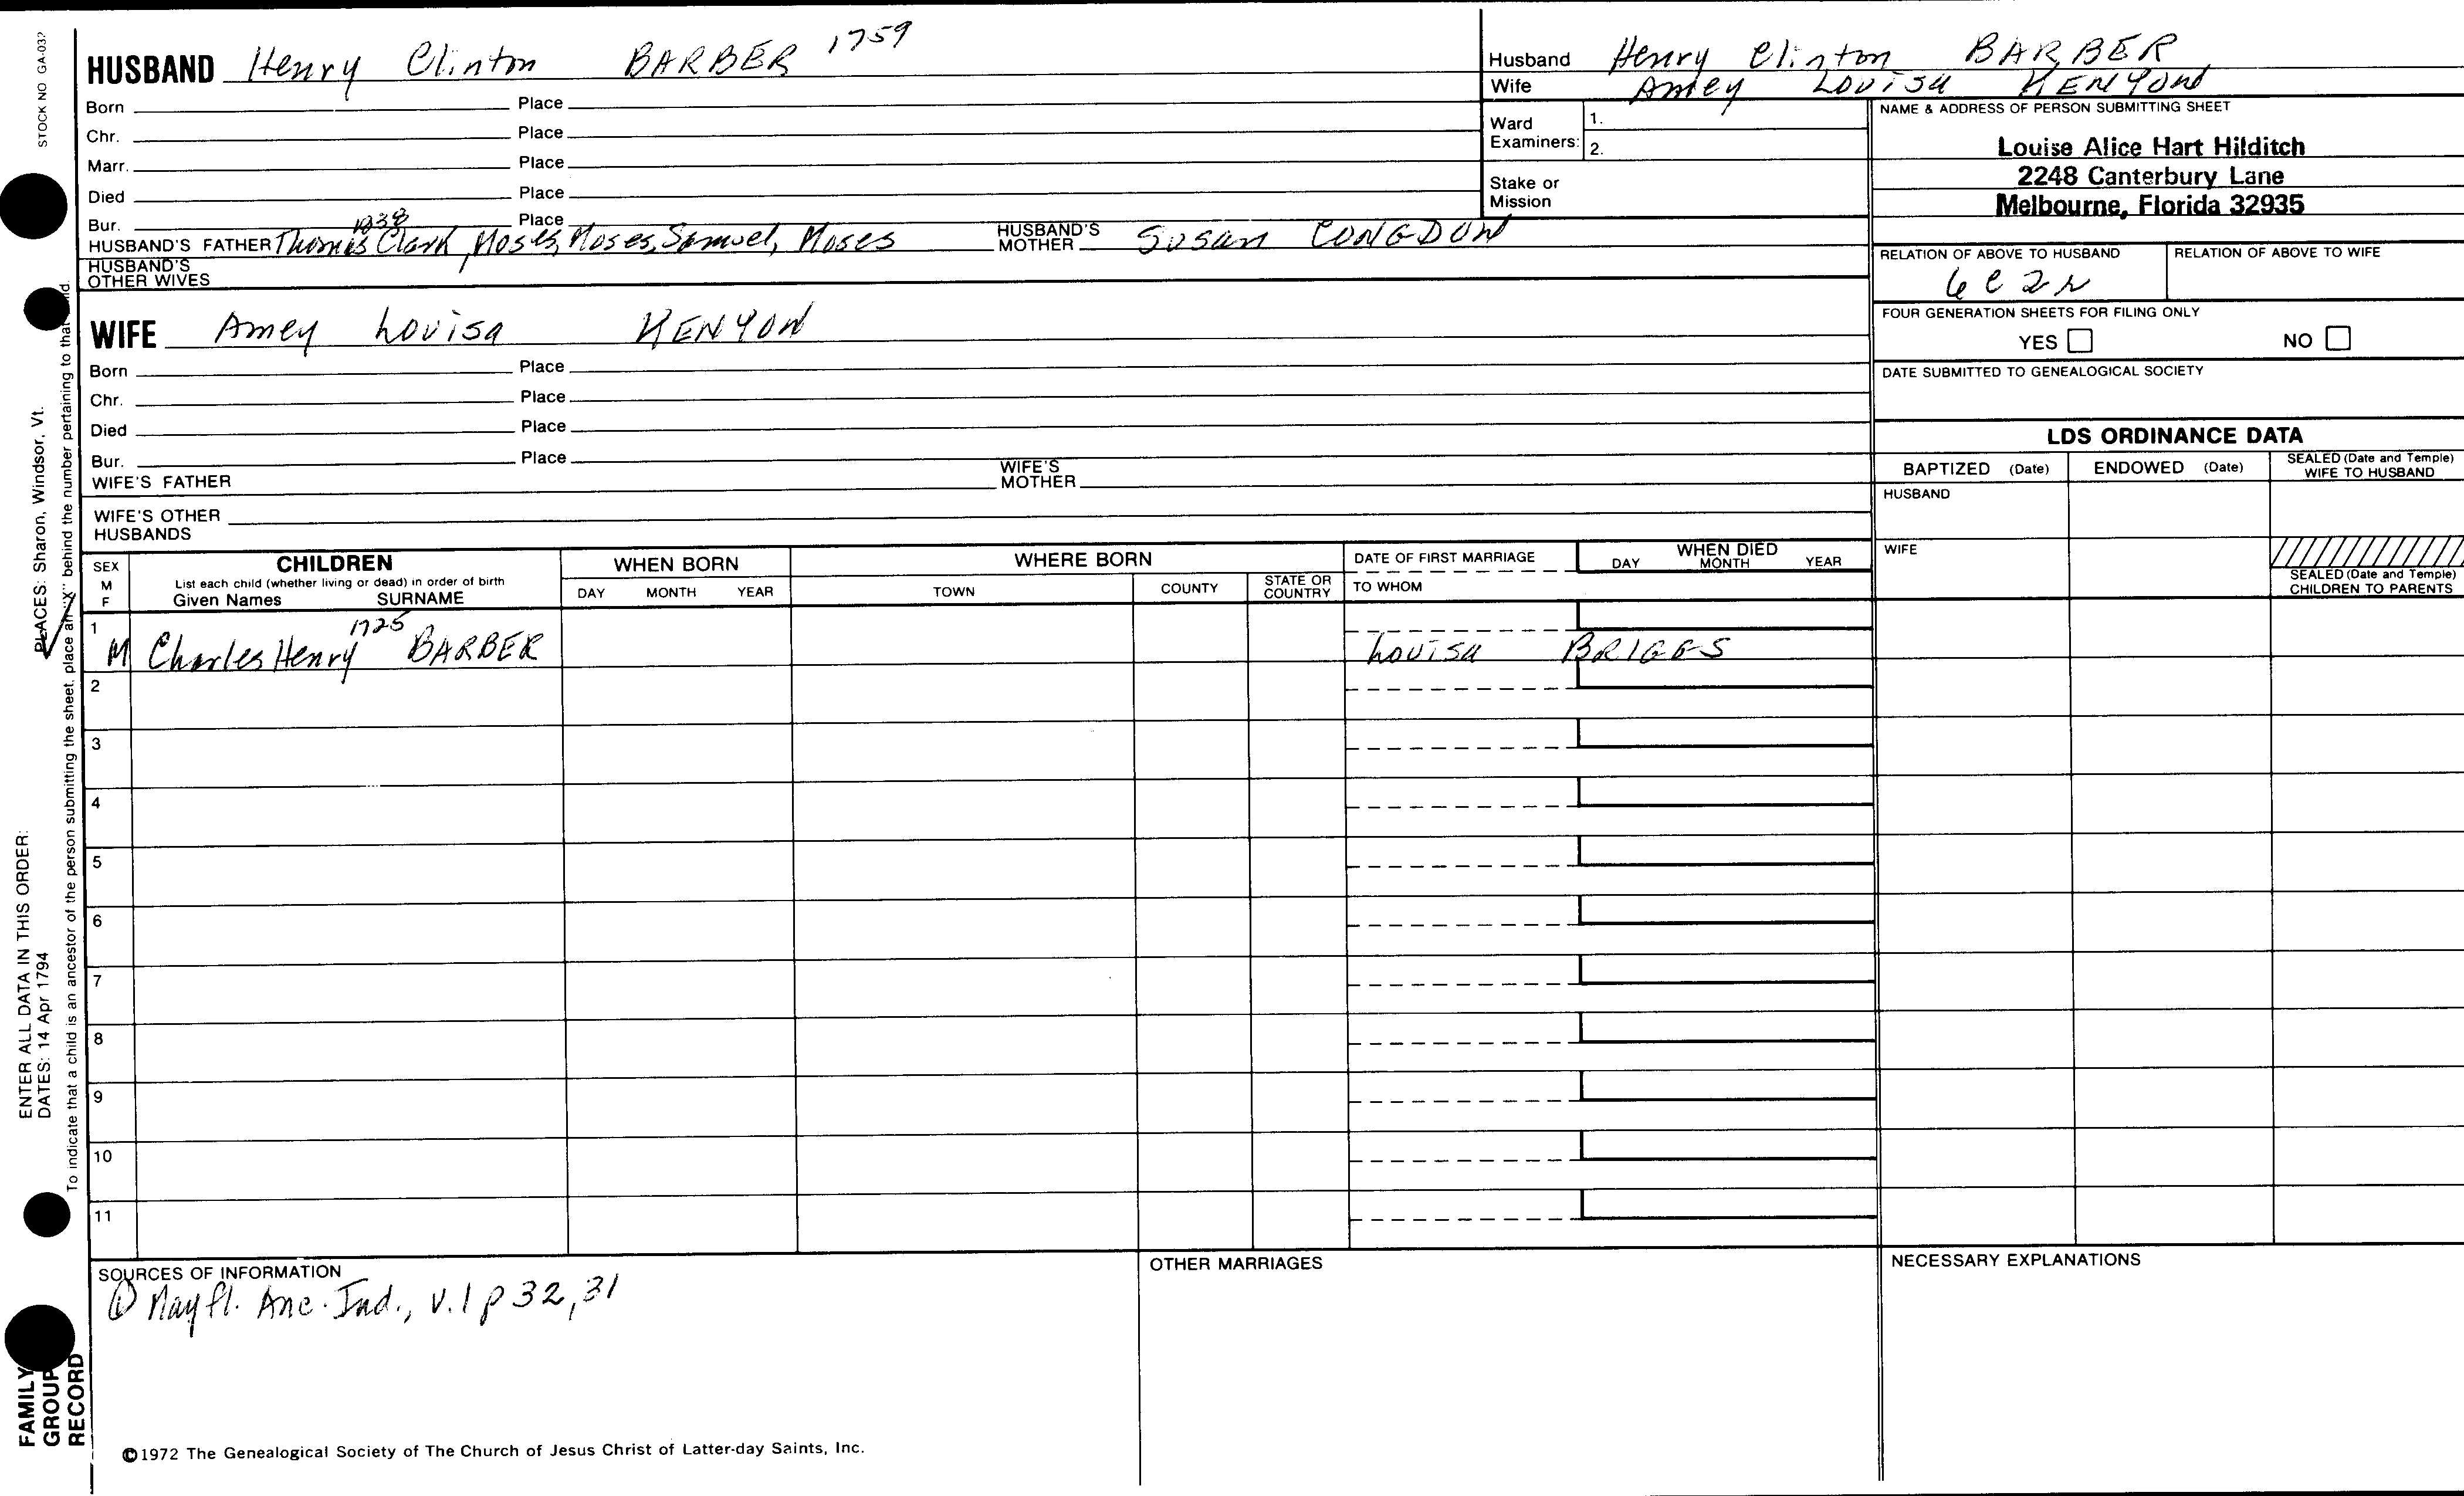 STOCK NO GA-032
HUSBAND Henry Clinton BARBER 1759
Born Place
Chr. Place
Marr. Place
Died Place
Bur. Place
1838
HUSBAND'S FATHER Thomas Clark, Moses, Moses, Samuel, Moses HUSBAND'S MOTHER Susan CONGDON
HUSBAND'S OTHER WIVES
WIFE Amey Louisa KENYON
Born Place
Chr. Place
Died Place
Bur. Place
WIFE'S FATHER WIFE'S MOTHER
WIFE'S OTHER HUSBANDS
Husband Henry Clinton BARBER
Wife Amey Louisa KENYON
Ward Examiners: 1.
2.
Stake or Mission
NAME & ADDRESS OF PERSON SUBMITTING SHEET
Louise Alice Hart Hilditch
2248 Canterbury Lane
Melbourne, Florida 32935
RELATION OF ABOVE TO HUSBAND RELATION OF ABOVE TO WIFE
6C2r
FOUR GENERATION SHEETS FOR FILING ONLY
YES NO
DATE SUBMITTED TO GENEALOGICAL SOCIETY
LDS ORDINANCE DATA
BAPTIZED (Date) ENDOWED (Date) SEALED (Date and Temple) WIFE TO HUSBAND
HUSBAND
WIFE
SEALED (Date and Temple) CHILDREN TO PARENTS
SEX M F
CHILDREN
List each child (whether living or dead) in order of birth
Given Names SURNAME
WHEN BORN
DAY MONTH YEAR
WHERE BORN
TOWN COUNTY STATE OR COUNTRY
DATE OF FIRST MARRIAGE
TO WHOM
WHEN DIED
DAY MONTH YEAR
1 M Charles Henry 1725 BARBER Louisa BRIGGS
2
3
4
5
6
7
8
9
10
11
SOURCES OF INFORMATION
① Mayfl. Anc. Ind., v.1 p 32, 31
OTHER MARRIAGES
NECESSARY EXPLANATIONS
©1972 The Genealogical Society of The Church of Jesus Christ of Latter-day Saints, Inc.
ENTER ALL DATA IN THIS ORDER:
DATES: 14 Apr 1794 PLACES: Sharon, Windsor, Vt.
To indicate that a child is an ancestor of the person submitting the sheet, place an "X" behind the number pertaining to that
FAMILY
GROUP
RECORD